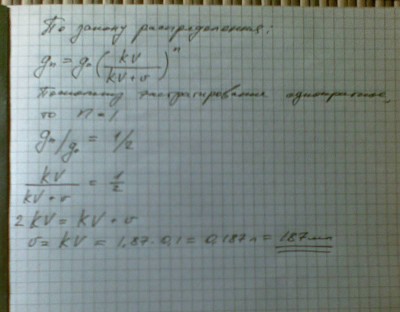 По закону распределения:
gₙ = g₀ (kV / kV + v)ⁿ
Поскольку экстрагирование однократное,
то n = 1
gₙ/g₀ = 1/2
kV / kV + v = 1/2
2 kV = kV + v
v = kV = 1,87 · 0,1 = 0,187 л = 187 мл